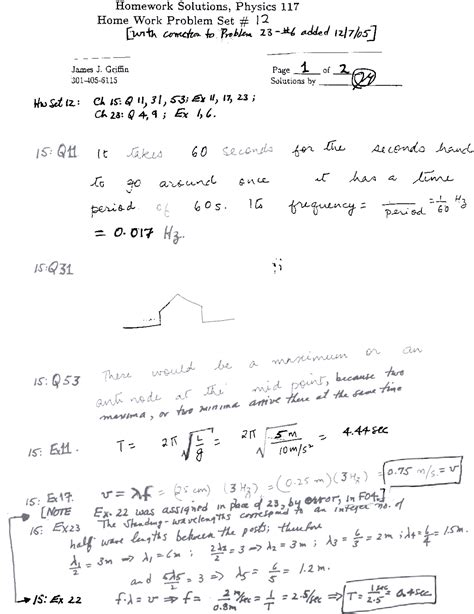 Homework Solutions, Physics 117
Home Work Problem Set # 12
[with correction to Problem 23-#6 added 12/7/05]
James J. Griffin
301-405-6115
Page 1 of 2
Solutions by
HW Set 12: Ch 15: Q 11, 31, 53; Ex 11, 17, 23;
Ch 23: Q 4, 9; Ex 1, 6.
15: Q11 It takes 60 seconds for the seconds hand
to go around once it has a time
period of 60s. Its frequency = 1/period = 1/60 Hz
= 0.017 Hz.
15: Q31
15: Q53 There would be a maximum or an
anti node at the mid point, because two
maxima, or two minima arrive there at the same time
15: Ex11. T = 2π √(L/g) = 2π √(5 m / 10 m/s²) = 4.44 sec
15: Ex17. v = λf = (25 cm) (3 Hz) = (0.25 m)(3 Hz) = 0.75 m/s = v
[NOTE Ex. 22 was assigned in place of 23, by error, in F04.]
15: Ex23 The standing-wavelengths correspond to an integer no. of
half wave lengths between the posts; therefore
λ₁/2 = 3m ⇒ λ₁ = 6m; 2λ₂/2 = 3 ⇒ λ₂ = 3m; λ₃ = 6/3 = 2m; λ₄ = 6/4 = 1.5m.
and 5λ₅/2 = 3 ⇒ λ₅ = 6/5 = 1.2m.
15: Ex 22 f·λ = v ⇒ f = 2m/s / 0.8m = 1/T = 2.5/sec ⇒ T = 1sec/2.5 = 0.4sec